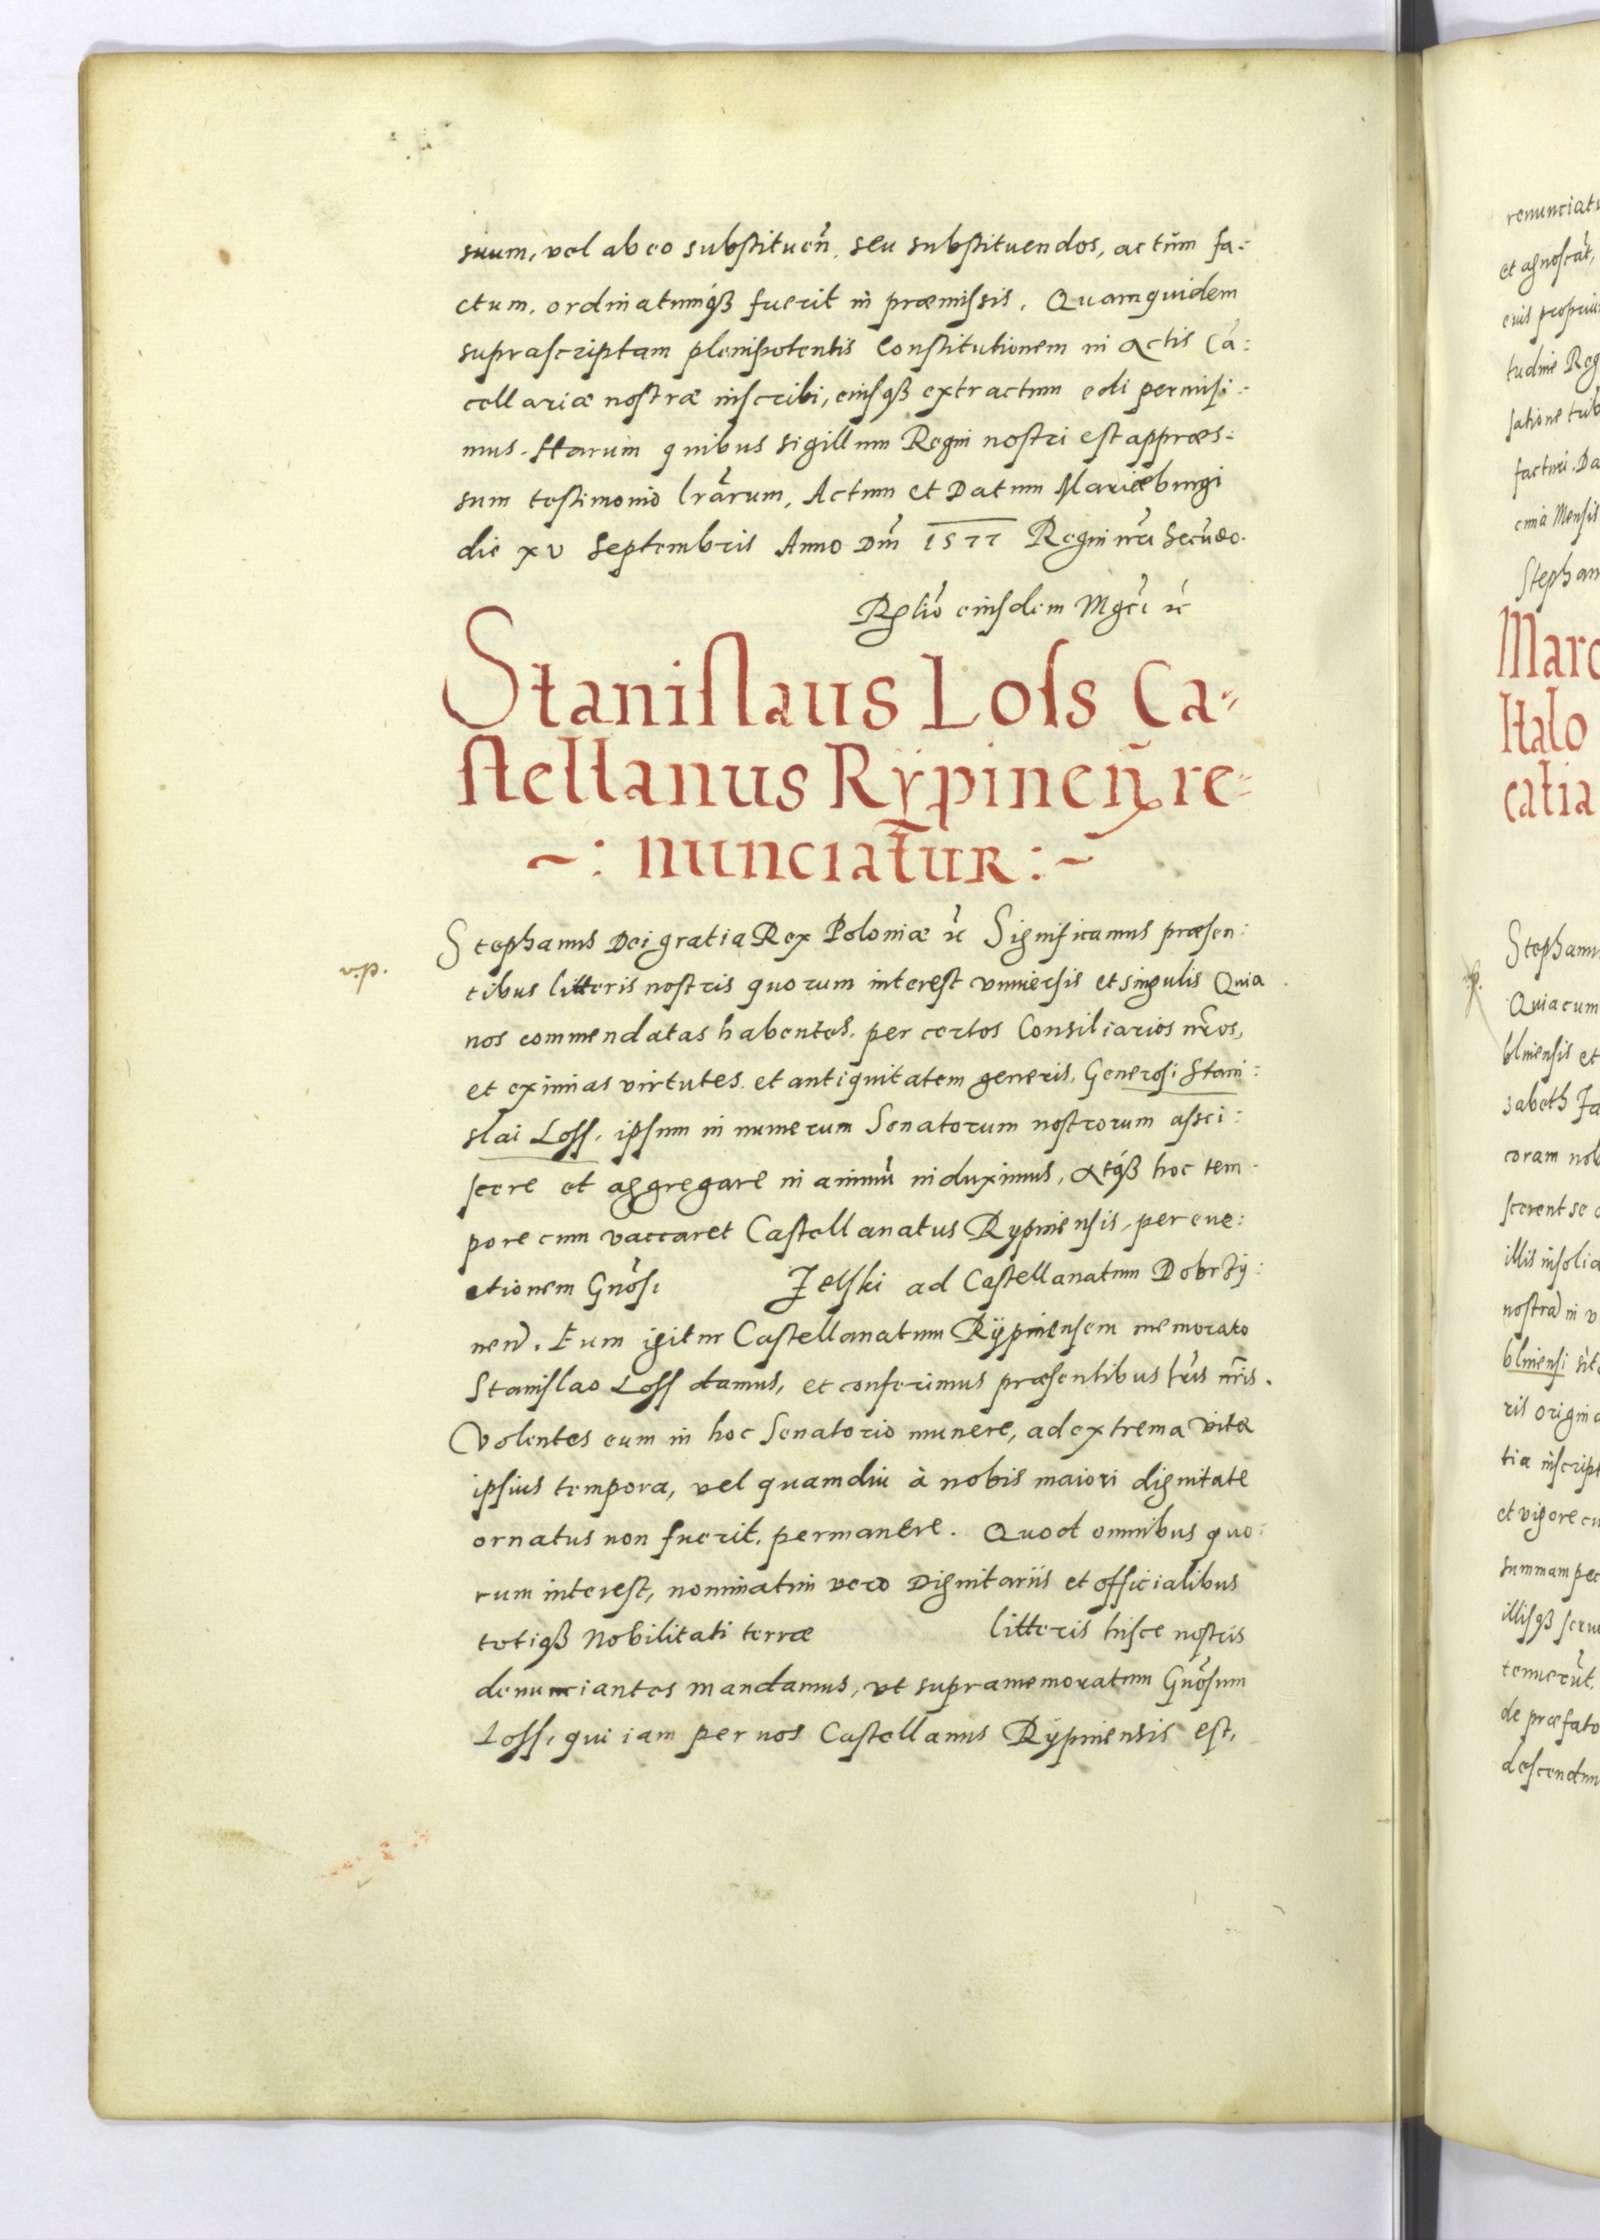 suum, vel ab eo substituen̄, seu substituendos, actūm fa:
ctum, ordinatumq́ꝫ fuerit in præmissis. Quamquidem
suprascriptam plenipotentis Constitutionem in Actis Cā:
cellariæ nostræ inscribi, eiusqꝫ extractum edi permisi:
mus. Harum quibus sigillum Regni nostri est appræs:
sum testimonio lrārum, Actum et Datum Mariæburgi
die xv Septembris Anno Dnī 1577 Regni nr̄i Secūdo.
Rēlio eiusdem Mgcī ꝛc
Stanislaus Loss Ca-
stellanus Rÿpinen̄ re-
~: nunciatur :~
v.p.
Stephanus Dei gratia Rex Poloniæ ꝛc Significamus præsen:
tibus litteris nostris quorum interest vniuersis et singulis Quia
nos commendatas habentes, per certos Consiliarios nr̄os,
et eximias virtutes, et antiquitatem generis, Generosi Stani:
slai Loss, ipsum in numerum Senatorum nostrorum assci:
scere et aggregare in animū induximus, Atq́ꝫ hoc tem:
pore cum vaccaret Castellanatus Rypinensis, per eue:
ctionem Gnōsi Jelski ad Castellanatum Dobrzÿ:
nen̄. Eum igitur Castellanatum Rÿpinensem memorato
Stanislao Loss damus, et conferimus præsentibus lrīs nr̄is.
Volentes eum in hoc Senatorio munere, ad extrema vitæ
ipsius tempora, vel quamdiu à nobis maiori dignitate
ornatus non fuerit, permanere. Quod omnibus quo:
rum interest, nominatim vero Dignitariis et officialibus
totiqꝫ Nobilitati terræ litteris hisce nostris
denunciantes mandamus, vt supramemoratum Gnōsum
Loss, qui iam per nos Castellanus Rÿpinensis est,
renunciatu
et agnoscāt,
satione
Stephan
Marc
Italo
catia
Stephanu
Quia cum
blinensis et
sabeth Ja
coram nob
scerent se
blinensi
ris origina
tia inscript
et vigore
summam pec
illisqꝫ
de præfato
descendun